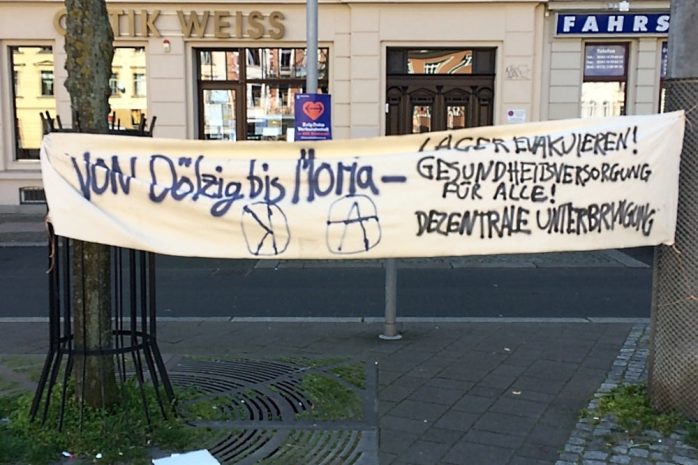 OPTIK WEISS
FAHRS
Telefon
VON Dölzig bis Moria –
LAGER EVAKUIEREN!
GESUNDHEITSVERSORGUNG
FÜR ALLE!
DEZENTRALE UNTERBRINGUNG